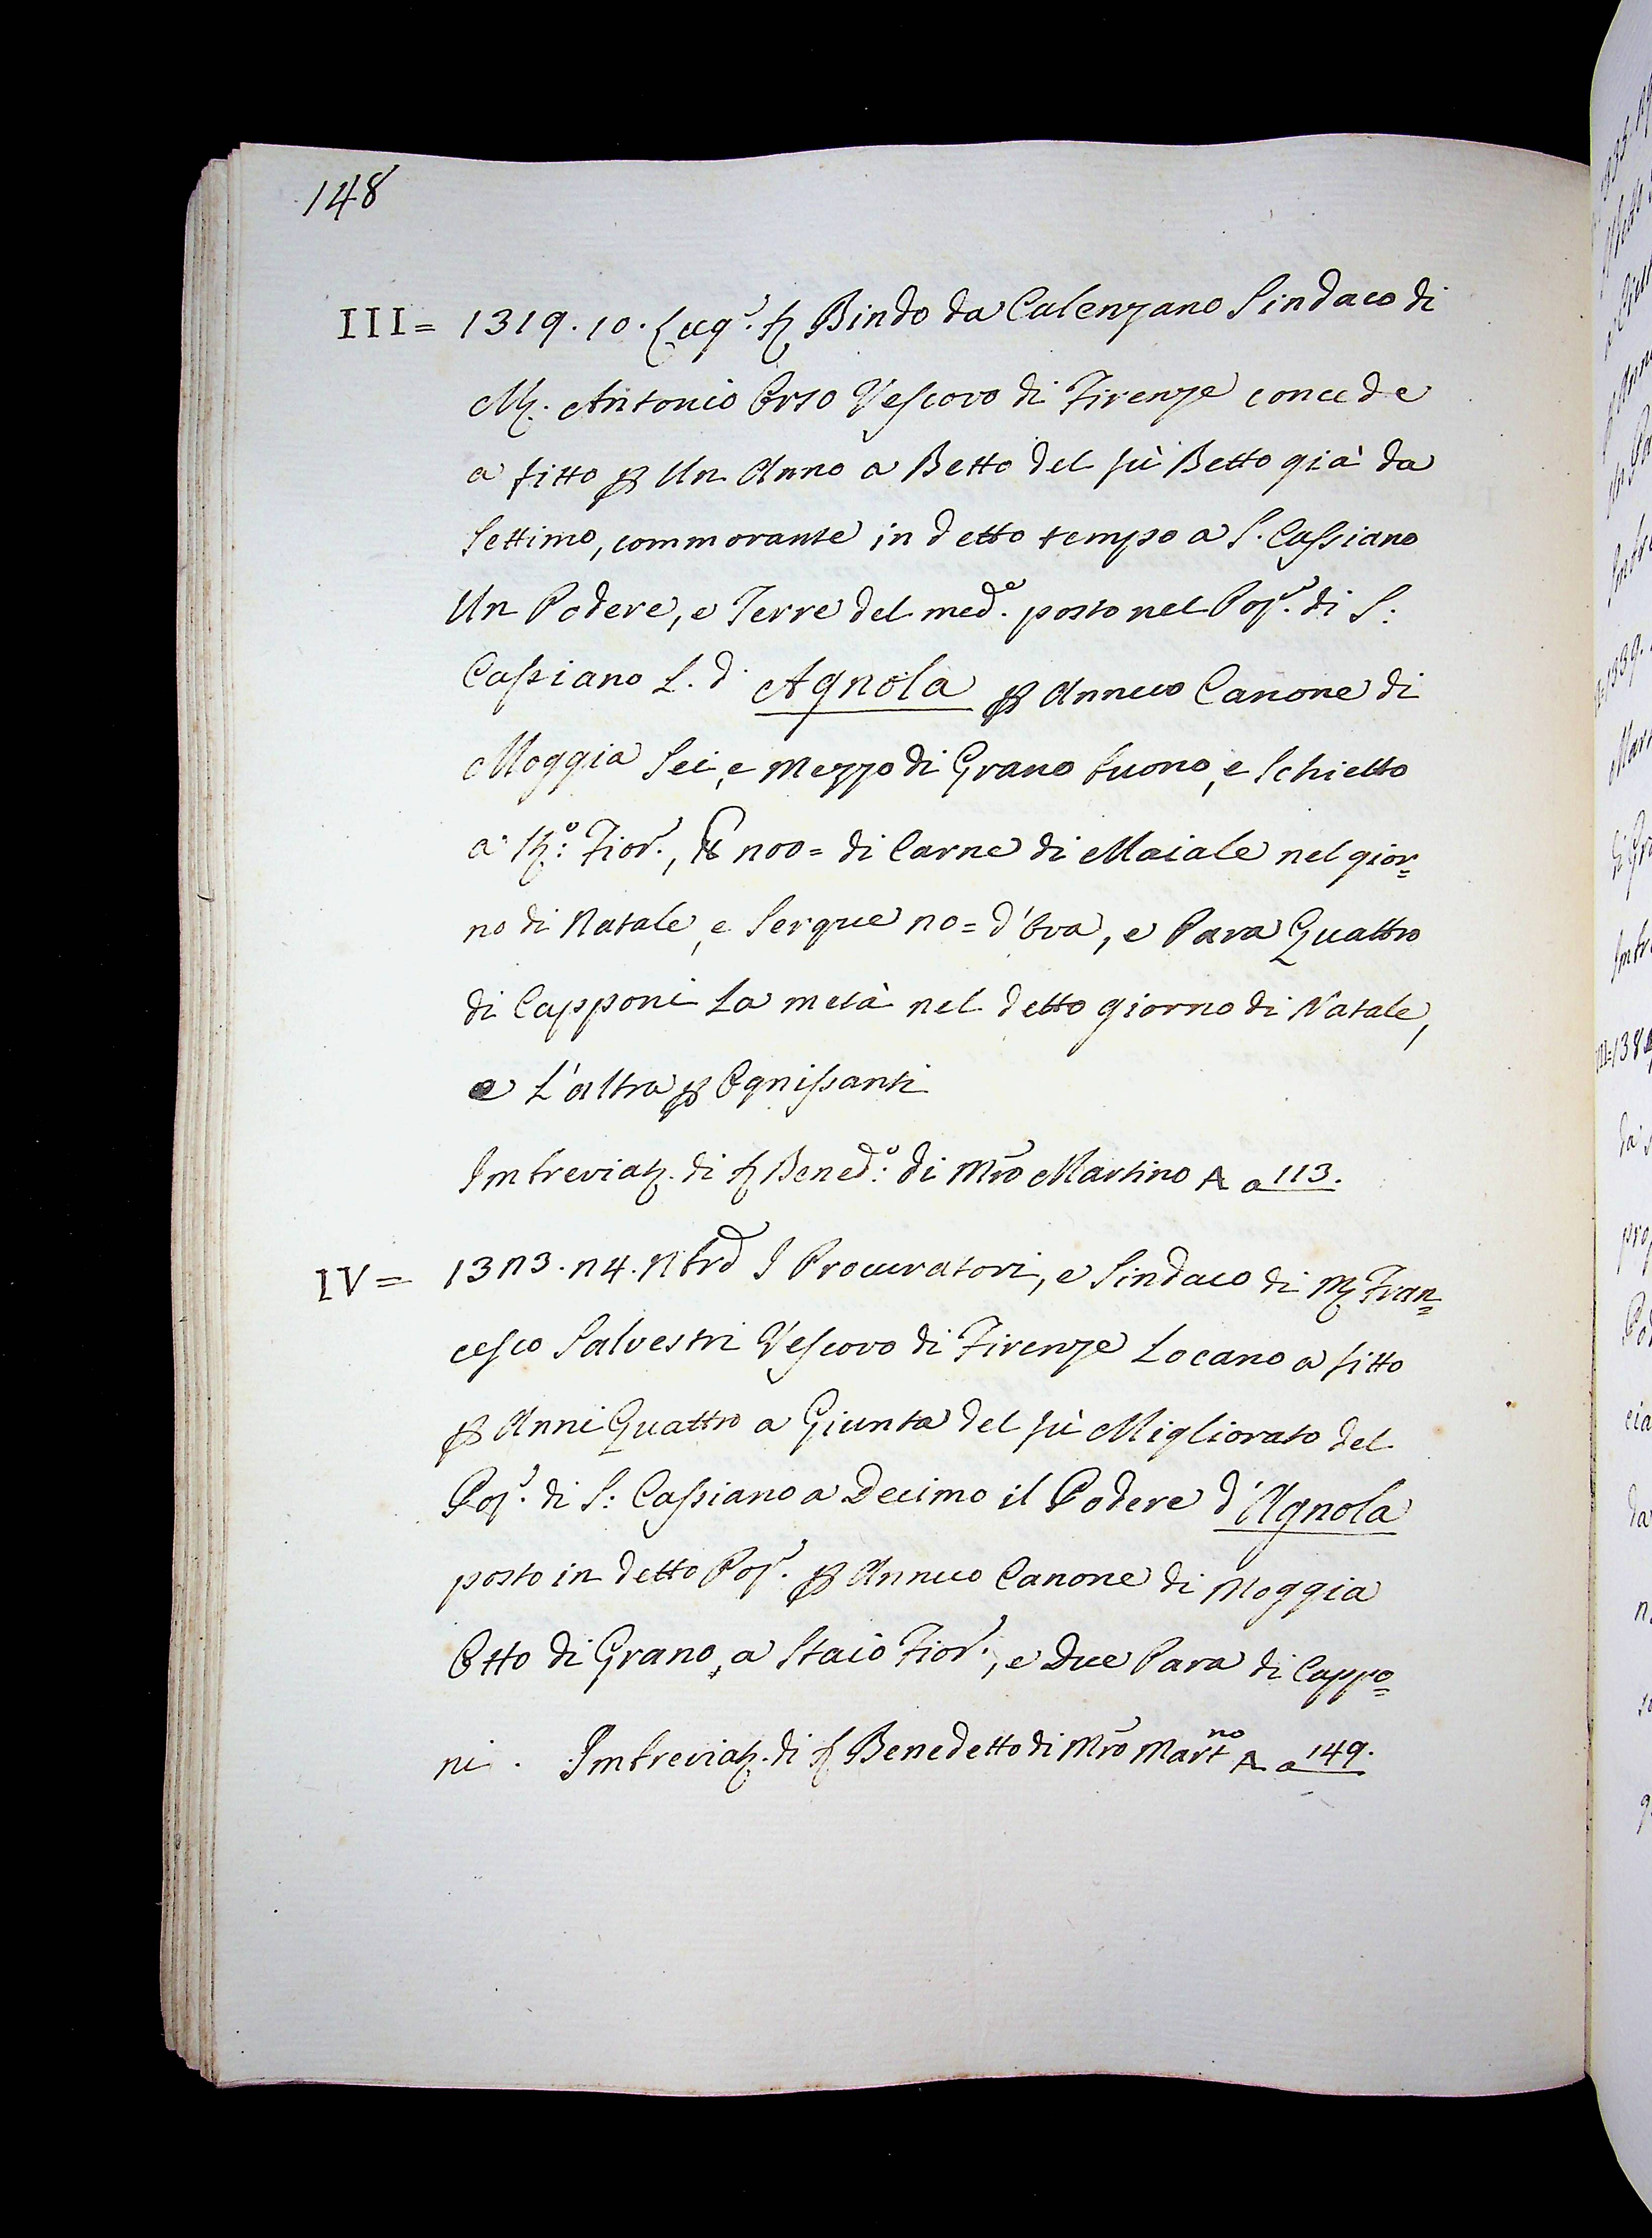 148
III = 1319. 10. Lug.º S. Bindo da Calenzano Sindaco di
M. Antonio Orso Vescovo di Firenze concede
a fitto p Un Anno a Betto del fù Betto già da
Settimo, commorante in detto tempo a S. Cassiano
Un Podere, e Terre del med.º posto nel Pop.º di S:
Cassiano L. d. Agnola p Annuo Canone di
Moggia Sei, e Mezzo di Grano buono, e Schietto
a St.º: Fior.º, ℔ 200 = di Carne di Maiale nel gior=
no di Natale, e Serque 20 = d'Ova, e Para Quattro
di Capponi La metà nel detto giorno di Natale,
e L'altra p Ognissanti
Imbreviaz. di S. Bened.º: di Mro Martino A a 113.
IV = 1323. 24. 9bre I Procuratori, e Sindaco di M. Fran=
cesco Salvestri Vescovo di Firenze Locano a fitto
p Anni Quattro a Giunta del fù Migliorato del
Pop.º di S: Cassiano a Decimo il Podere d'Agnola
posto in detto Pop.º p Annuo Canone di Moggia
Otto di Grano, a Staio Fior.º, e Due Para di Cappo=
ni. Imbreviaz. di S. Benedetto di Mro Martno A a 149.